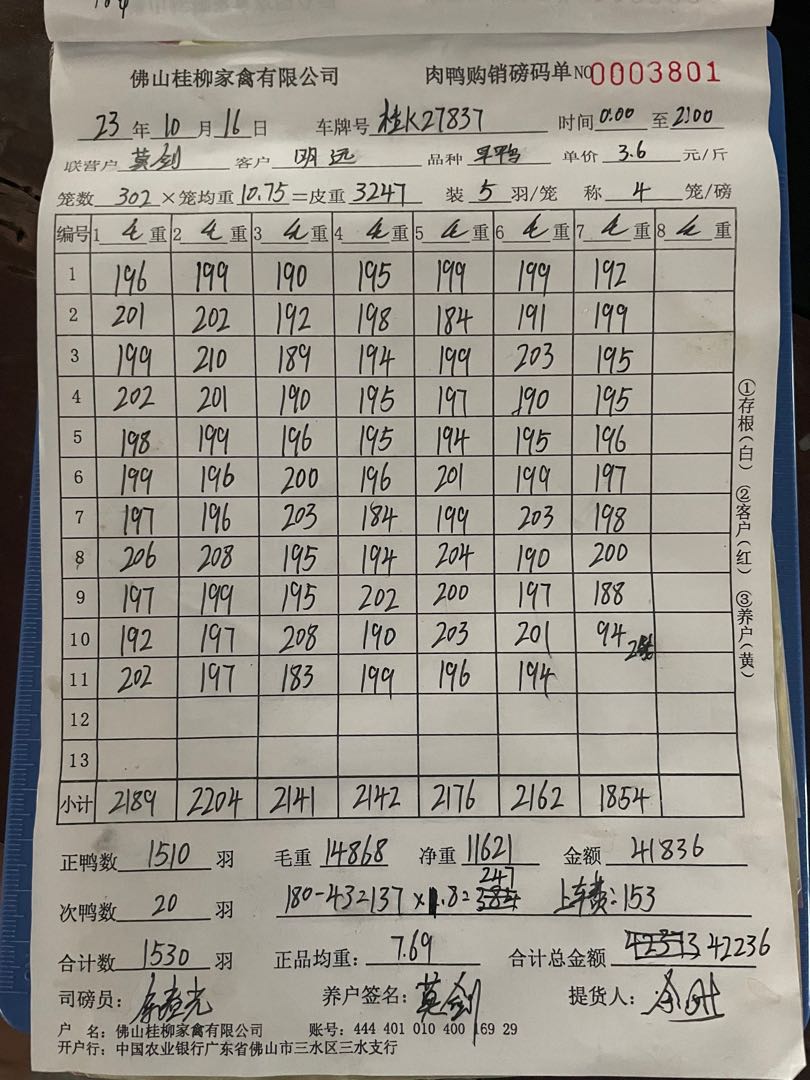 佛山桂柳家禽有限公司 肉鸭购销磅码单 NO0003801
23年10月16日 车牌号 桂K27837 时间0:00至2:00
联营户 莫剑 客户 明远 品种 旱鸭 单价 3.6 元/斤
笼数 302 ×笼均重10.75=皮重 3247 装 5 羽/笼 称 4 笼/磅
编号 1 毛重 2 毛重 3 毛重 4 毛重 5 毛重 6 毛重 7 毛重 8 毛重
1 196 199 190 195 199 199 192
2 201 202 192 198 184 191 199
3 199 210 189 194 199 203 195
4 202 201 190 195 197 190 195
5 198 199 196 195 194 195 196
6 199 196 200 196 201 199 197
7 197 196 203 184 199 203 198
8 206 208 195 194 204 190 200
9 197 199 195 202 200 197 188
10 192 197 208 190 203 201 94
11 202 197 183 199 196 194
12
13
小计 2189 2204 2141 2142 2176 2162 1854
正鸭数 1510 羽 毛重 14868 净重 11621 金额 41836
次鸭数 20 羽 180-43=137×1.8=247 上车费:153
合计数 1530 羽 正品均重: 7.69 合计总金额 42236
司磅员: 养户签名: 莫剑 提货人:
户 名: 佛山桂柳家禽有限公司 账号: 444 401 010 400 169 29
开户行: 中国农业银行广东省佛山市三水区三水支行
①存根(白) ②客户(红) ③养户(黄)